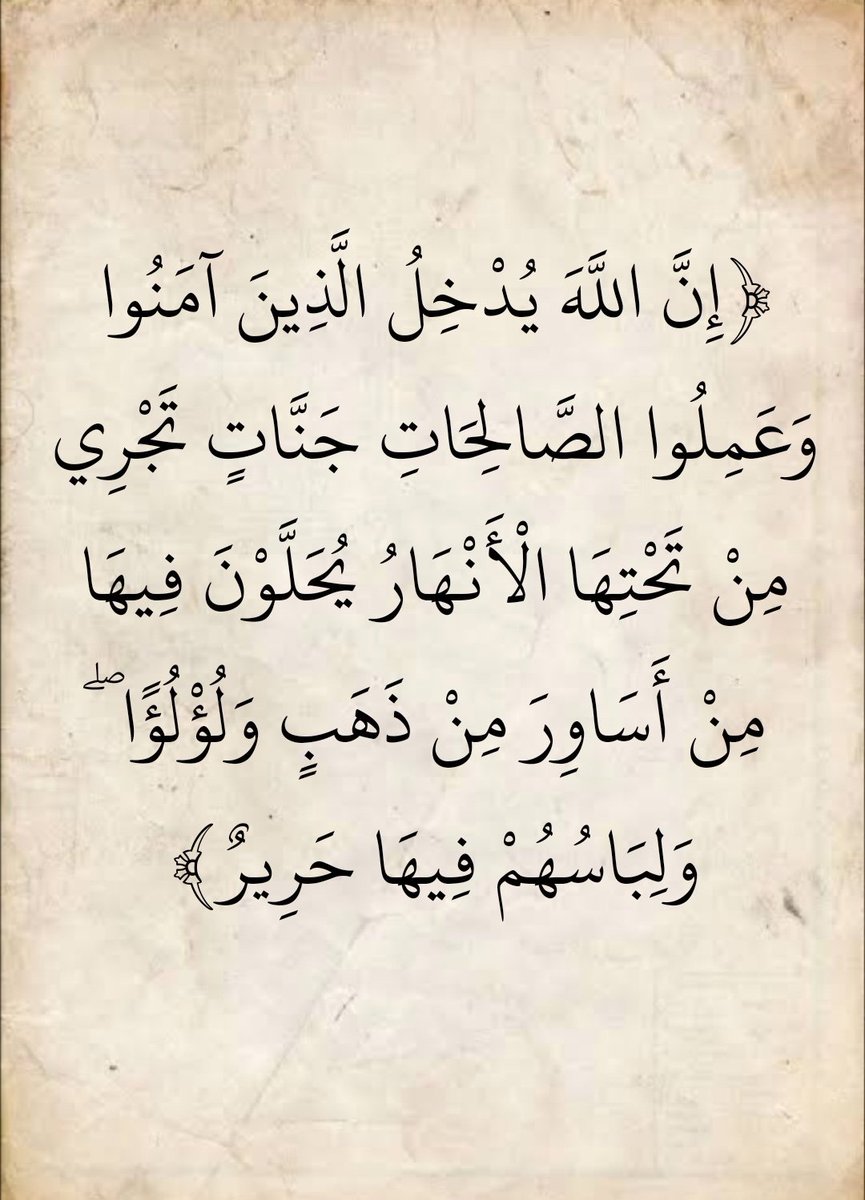 ﴿إِنَّ اللَّهَ يُدْخِلُ الَّذِينَ آمَنُوا
وَعَمِلُوا الصَّالِحَاتِ جَنَّاتٍ تَجْرِي
مِنْ تَحْتِهَا الْأَنْهَارُ يُحَلَّوْنَ فِيهَا
مِنْ أَسَاوِرَ مِنْ ذَهَبٍ وَلُؤْلُؤًا ۖ
وَلِبَاسُهُمْ فِيهَا حَرِيرٌ﴾